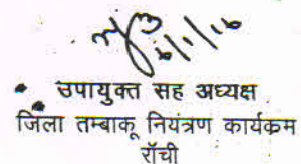 6/1/16
उपायुक्त सह अध्यक्ष
जिला तम्बाकू नियंत्रण कार्यकम
रॉची